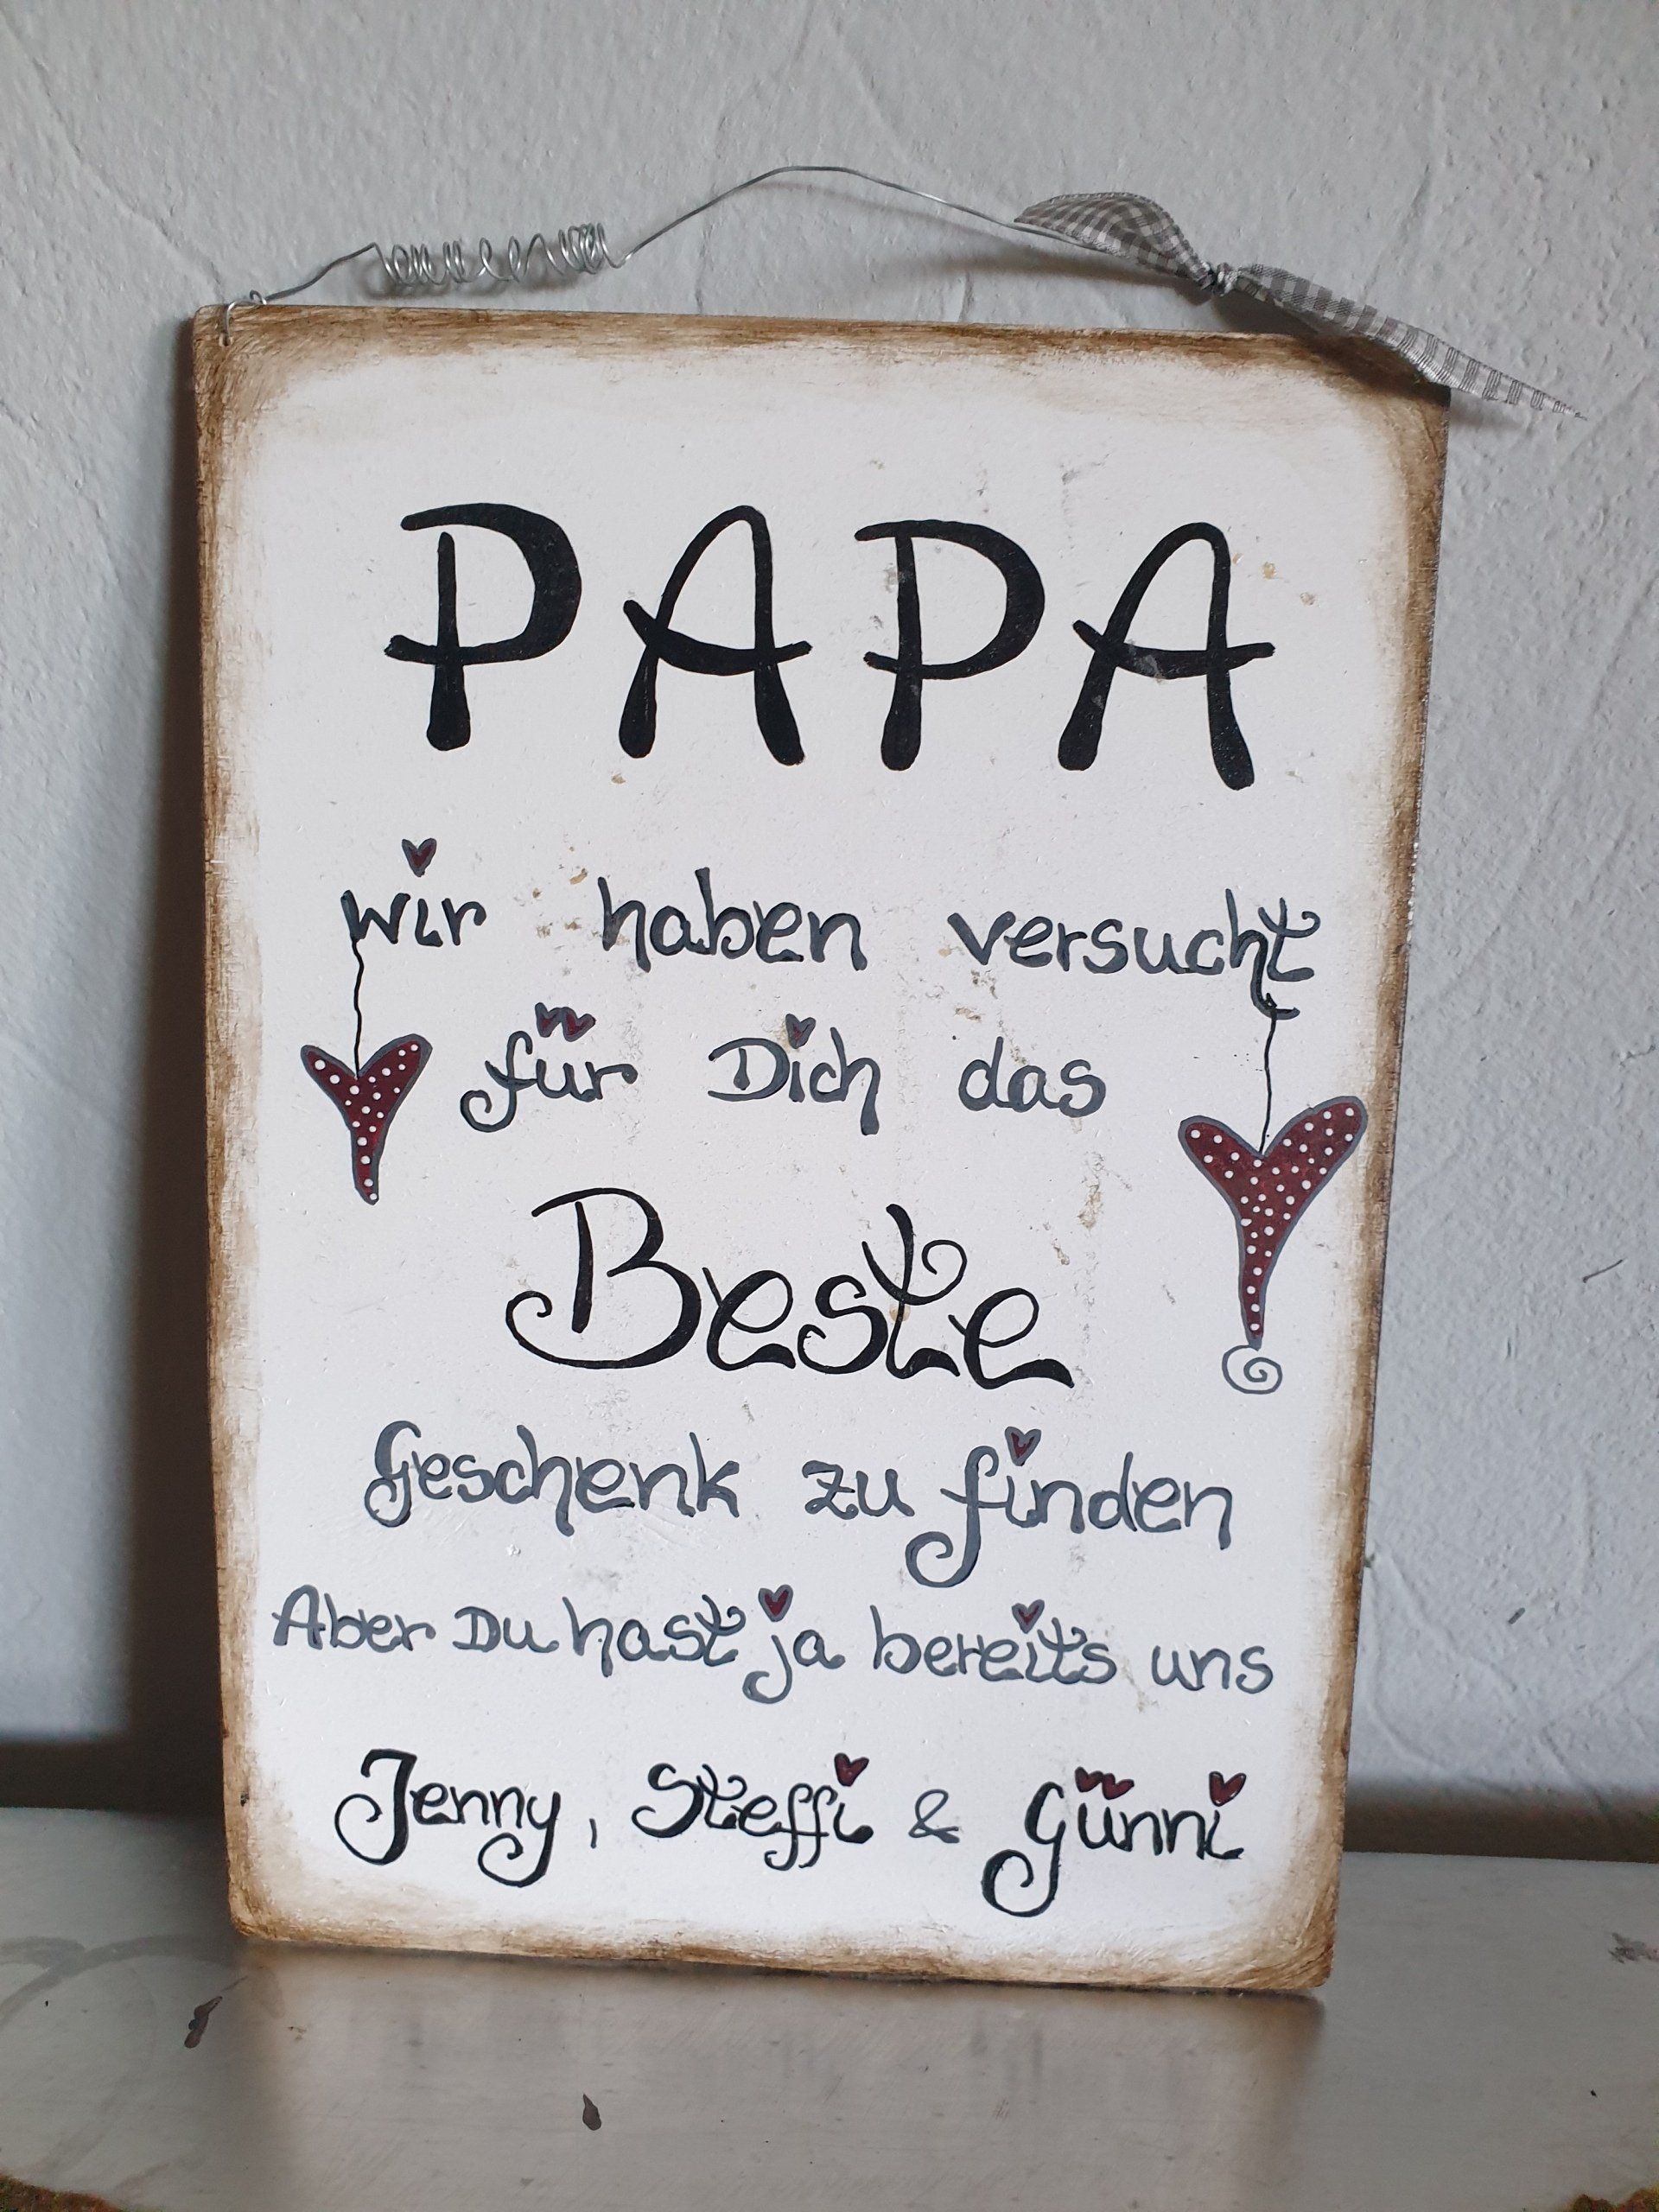 PAPA
wir haben versucht
für Dich das
Beste
Geschenk zu finden
Aber Du hast ja bereits uns
Jenny, Steffi & Günni